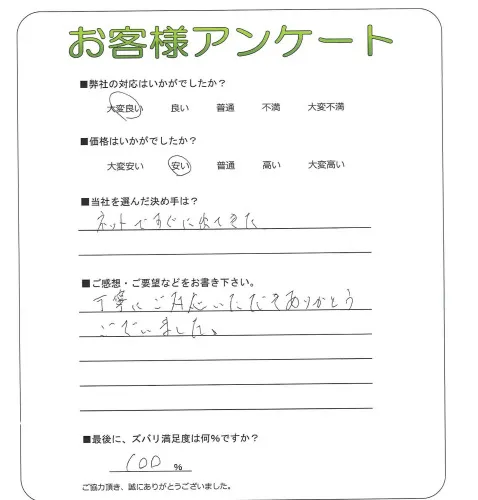 お客様アンケート
■弊社の対応はいかがでしたか？
大変良い 良い 普通 不満 大変不満
■価格はいかがでしたか？
大変安い 安い 普通 高い 大変高い
■当社を選んだ決め手は？
ネットですぐに出てきた
■ご感想・ご要望などをお書き下さい。
丁寧にご対応いただきありがとう
ございました。
■最後に、ズバリ満足度は何%ですか？
100 %
ご協力頂き、誠にありがとうございました。